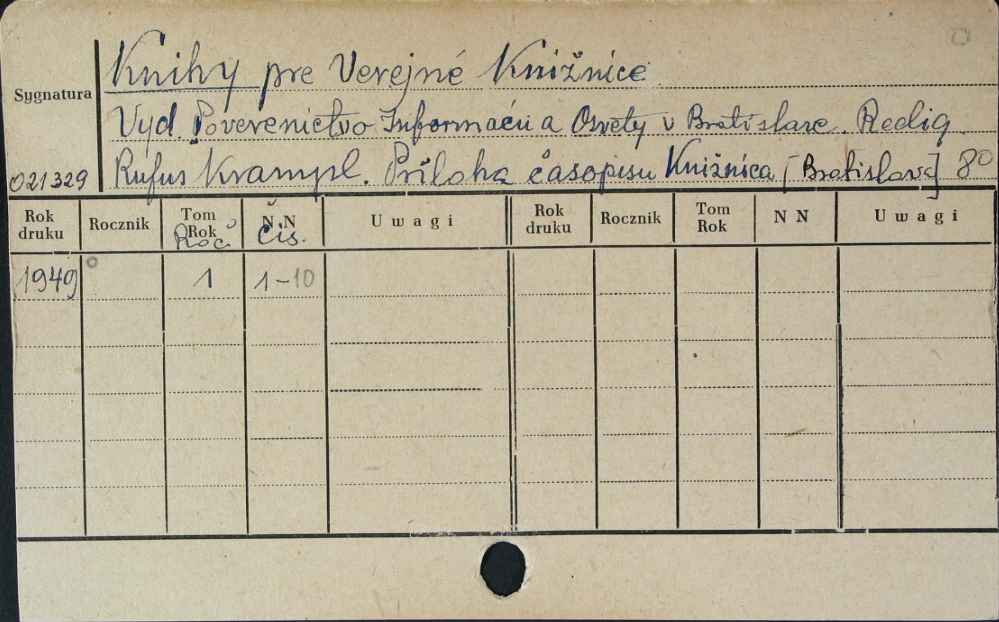 Knihy pre Verejné Knižnice
Sygnatura
Vyd. Poverenictvo Informácií a Osvety v Bratislave. Redig.
021329
Rufus Krampl. Príloha časopisu Knižnica [Bratislava] 8º
Rok druku Rocznik Tom Rok N.N Uwagi Rok druku Rocznik Tom Rok NN Uwagi
Roč. Čís.
1949 1 1-10